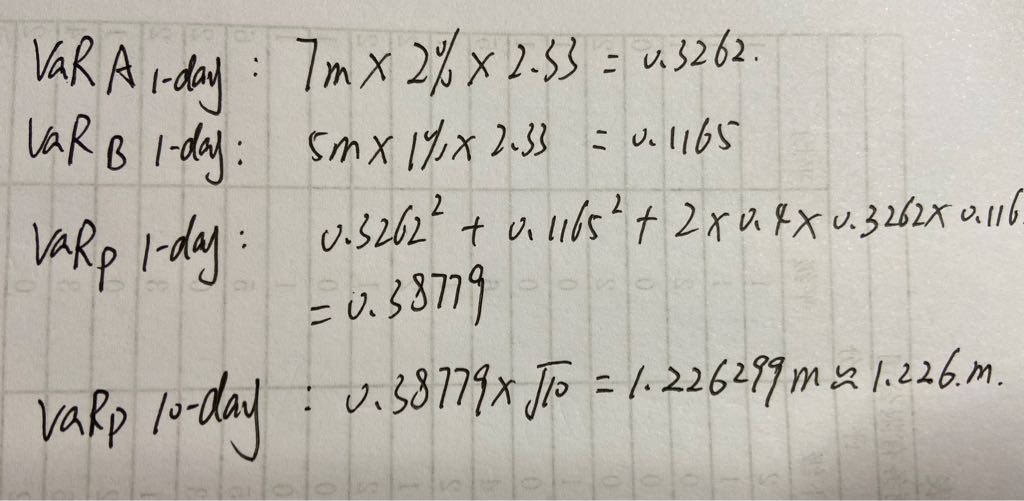 VaR A 1-day : 7m × 2% × 2.33 = 0.3262.
VaR B 1-day : 5m × 1% × 2.33 = 0.1165
VaR p 1-day : 0.3262² + 0.1165² + 2 × 0.4 × 0.3262 × 0.116
= 0.38779
VaR p 10-day : 0.38779 × √10 = 1.226299m ≈ 1.226.m.